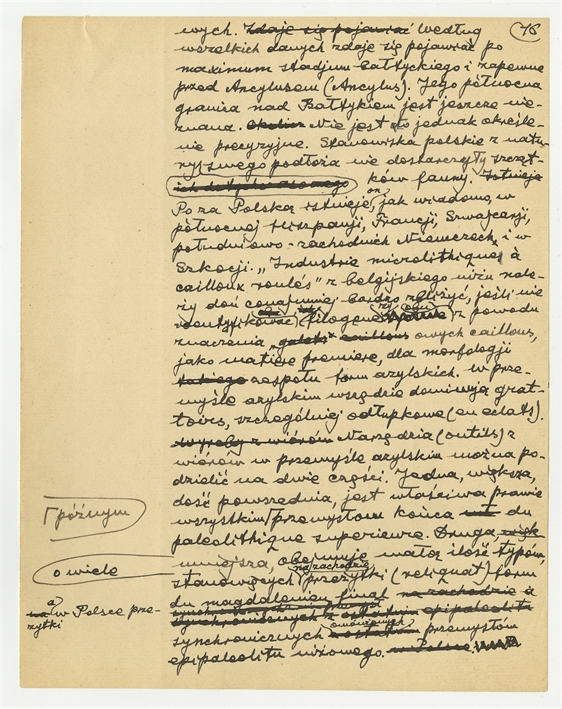 76
wych. Zdaje się pojawiać Według
wszelkich danych zdaje się pojawiać po
maximum stadjum bałtyckiego i zapewne
przed Ancylusem (Ancylus). Jego północna
granica nad Bałtykiem jest jeszcze nie-
znana. Nie jest to jednak określe-
nie precyzyjne. Stanowiska polskie z natu-
ry swego podłoża nie dostarczyły szcząt-
ków fauny. Istnieje
Poza Polską istnieje on, jak wiadomo, w
północnej Hiszpanji, Francji, Szwajcarji,
południowo-zachodnich Niemczech i w
Szkocji. „Industrie microlithique à
cailloux roulés" z belgijskiego niżu nale-
ży doń conajmniej bardzo zbliżyć, jeśli nie
identyfikować z powodu
znaczenia „galets" cailloux owych cailloux,
jako matière première, dla morfologji
takiego zespołu form azylskich. W prze-
myśle azylskim wszędzie dominują grat-
toirs, szczególniej odłupkowe (en éclats).
Wyroby z wiórów Narzędzia (outils) z
wiórów w przemyśle azylskim można po-
dzielić na dwie części. Jedna, większa,
dość powszednia, jest właściwa prawie
wszystkim przemysłom końca du
późnym
paléolithique supérieure. Druga,
o wiele
mniejsza, obejmuje małą ilość typów,
na zachodzie
stanowiących przeżytki (reliquat) form
a w Polsce prze-
żytki
du magdalénien final na zachodzie a
epipaleolitu
synchronicznych omówionych przemysłów
epipaleolitu niżowego. w Polsce.